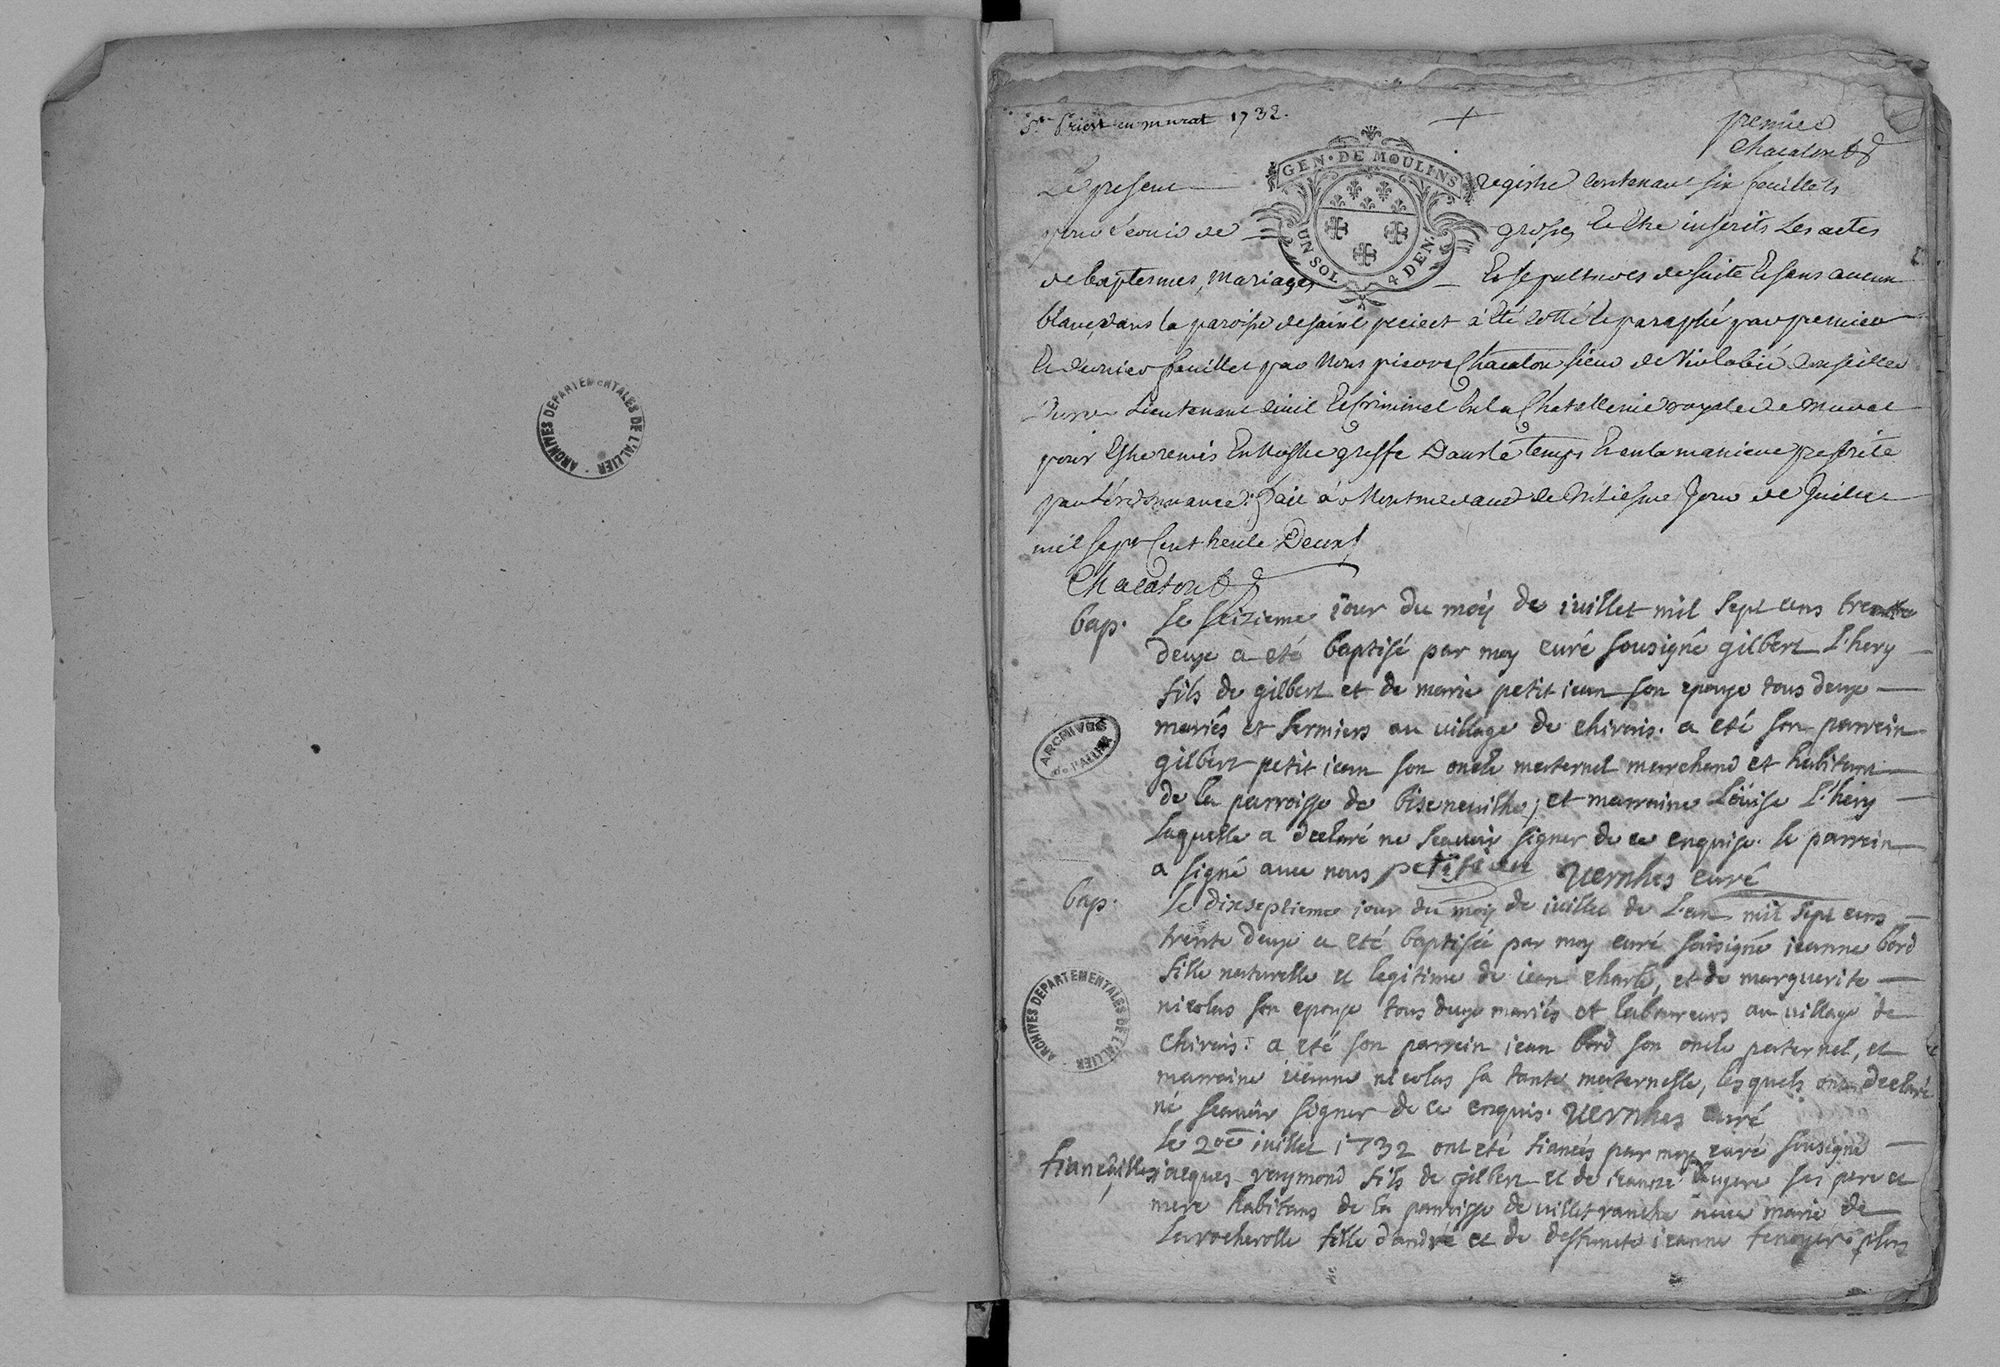 ARCHIVES DEPARTEMENTALES DE L'ALLIER
St Priest en murat 1732.
premier
Chacaton
GEN. DE MOULINS
UN SOL 4 DEN.
Le present registre contenant six feuillets
pour servir de Et Etre inserits Les actes
de baptesmes, mariages Et sepultures de suite Et sans aucun
blanc, dans la paroisse de saint priest a été cotté Et paraphé par premier
Et dernier feuillet par Nous pierre Chacaton sieur de Conseiller
Lieutenant Civil Et Criminel En la Chatellenie royale de murat
pour Estre remis En Nostre greffe Dans le temps Et en la maniere prescrite
par L'ordonnance. fait a Montmeraud Jour de Juillet
mil sept Cent trente Deux
Chacaton
bap. le seizieme jour du moy de iuillet mil sept cens trente
deuxe a eté baptisé par moy curé sousigné gilbert l'hery
fils de gilbert et de marie petit iean son epouze tous deuxe
mariés et fermiers au village de chirais. a eté son parrein
ARCHIVES DE L'ALLIER
gilbert petit iean son oncle maternel marchand et habitant
de la parroisse de biseneuilhe, et marraine Loüise l'hery
laquelle a declaré ne scauoir signer de ce enquise. le parrein
a signé auec nous petitjean Vernhes curé
bap. le dixseptieme iour du moy de iuillet de l'an mil sept cens
trente deuxe a eté baptisée par moy curé sousigné ieanne bord
fille naturelle et legitime de iean charle, et de marguerite
nicolas son epouze tous deuxe mariés et laboureurs au village de
ARCHIVES DEPARTEMENTALES DE L'ALLIER
chirais: a eté son parrein iean bord son oncle paternel, et
marraine ieanne nicolas sa tante maternelle, lesquels ont declaré
né scauoir signer de ce enquis. Vernhes curé
le 20e iuillet 1732 ont eté fiancés par moy curé sousigné
fiancailles iacques raymond fils de gilbert et de ieanne ses pere et
mere habitans de la parroisse de villefranche auec marie de
larocherolle fille d'andré et de deffuncte ieanne